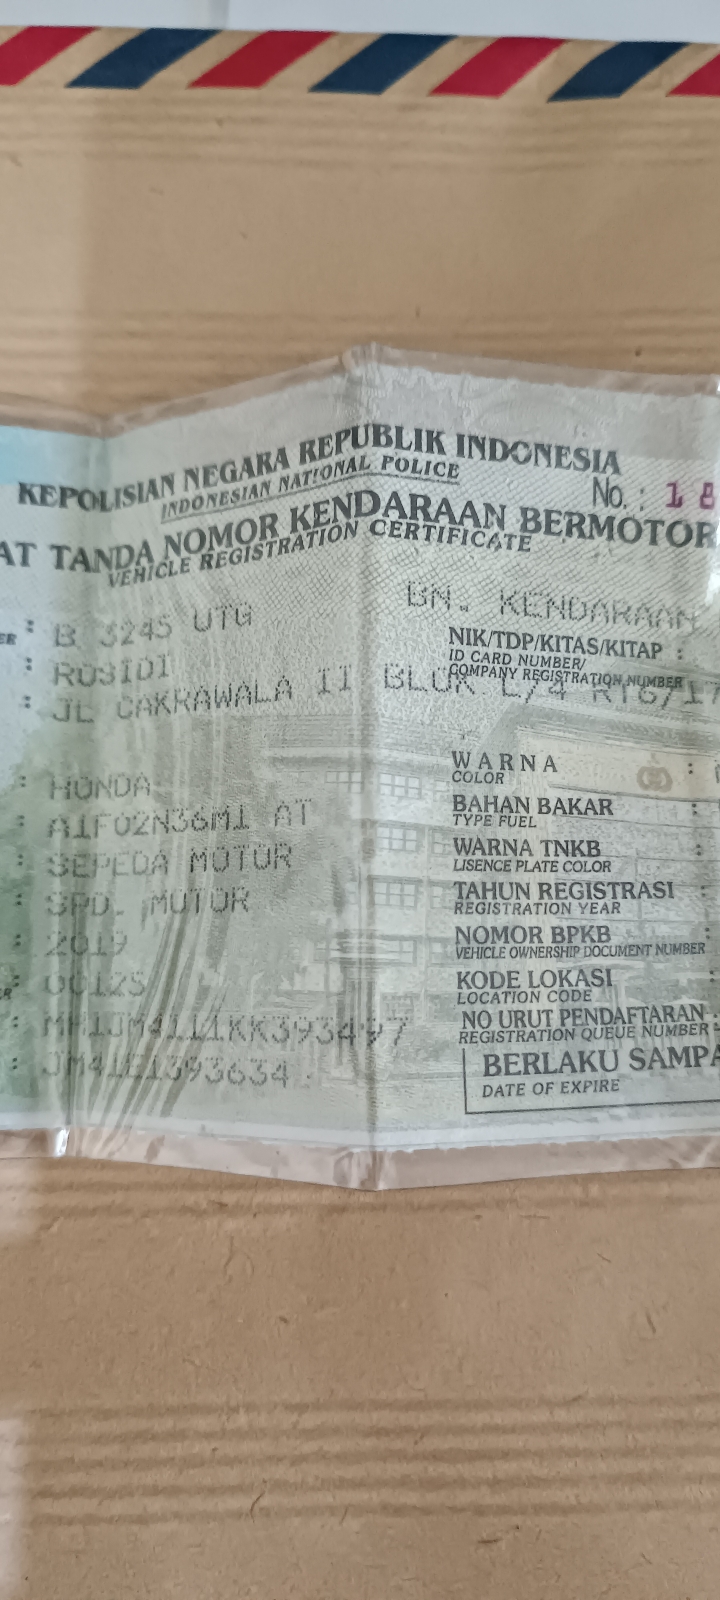 KEPOLISIAN NEGARA REPUBLIK INDONESIA
INDONESIAN NATIONAL POLICE
No. : 18
AT TANDA NOMOR KENDARAAN BERMOTOR
VEHICLE REGISTRATION CERTIFICATE
BN. KENDARAAN
: B 3245 UTG
NIK/TDP/KITAS/KITAP :
ID CARD NUMBER/
COMPANY REGISTRATION NUMBER
: ROSIDI
: JL CAKRAWALA II BLOK L/4
: HONDA
WARNA :
COLOR
: A1F02N36M1 AT
BAHAN BAKAR :
TYPE FUEL
: SEPEDA MOTOR
WARNA TNKB :
LISENCE PLATE COLOR
: SPD. MOTOR
TAHUN REGISTRASI :
REGISTRATION YEAR
: 2019
NOMOR BPKB :
VEHICLE OWNERSHIP DOCUMENT NUMBER
: 00125
KODE LOKASI :
LOCATION CODE
: MH1JM4111KK393497
NO URUT PENDAFTARAN :
REGISTRATION QUEUE NUMBER
: JM41E1393634
BERLAKU SAMPA
DATE OF EXPIRE